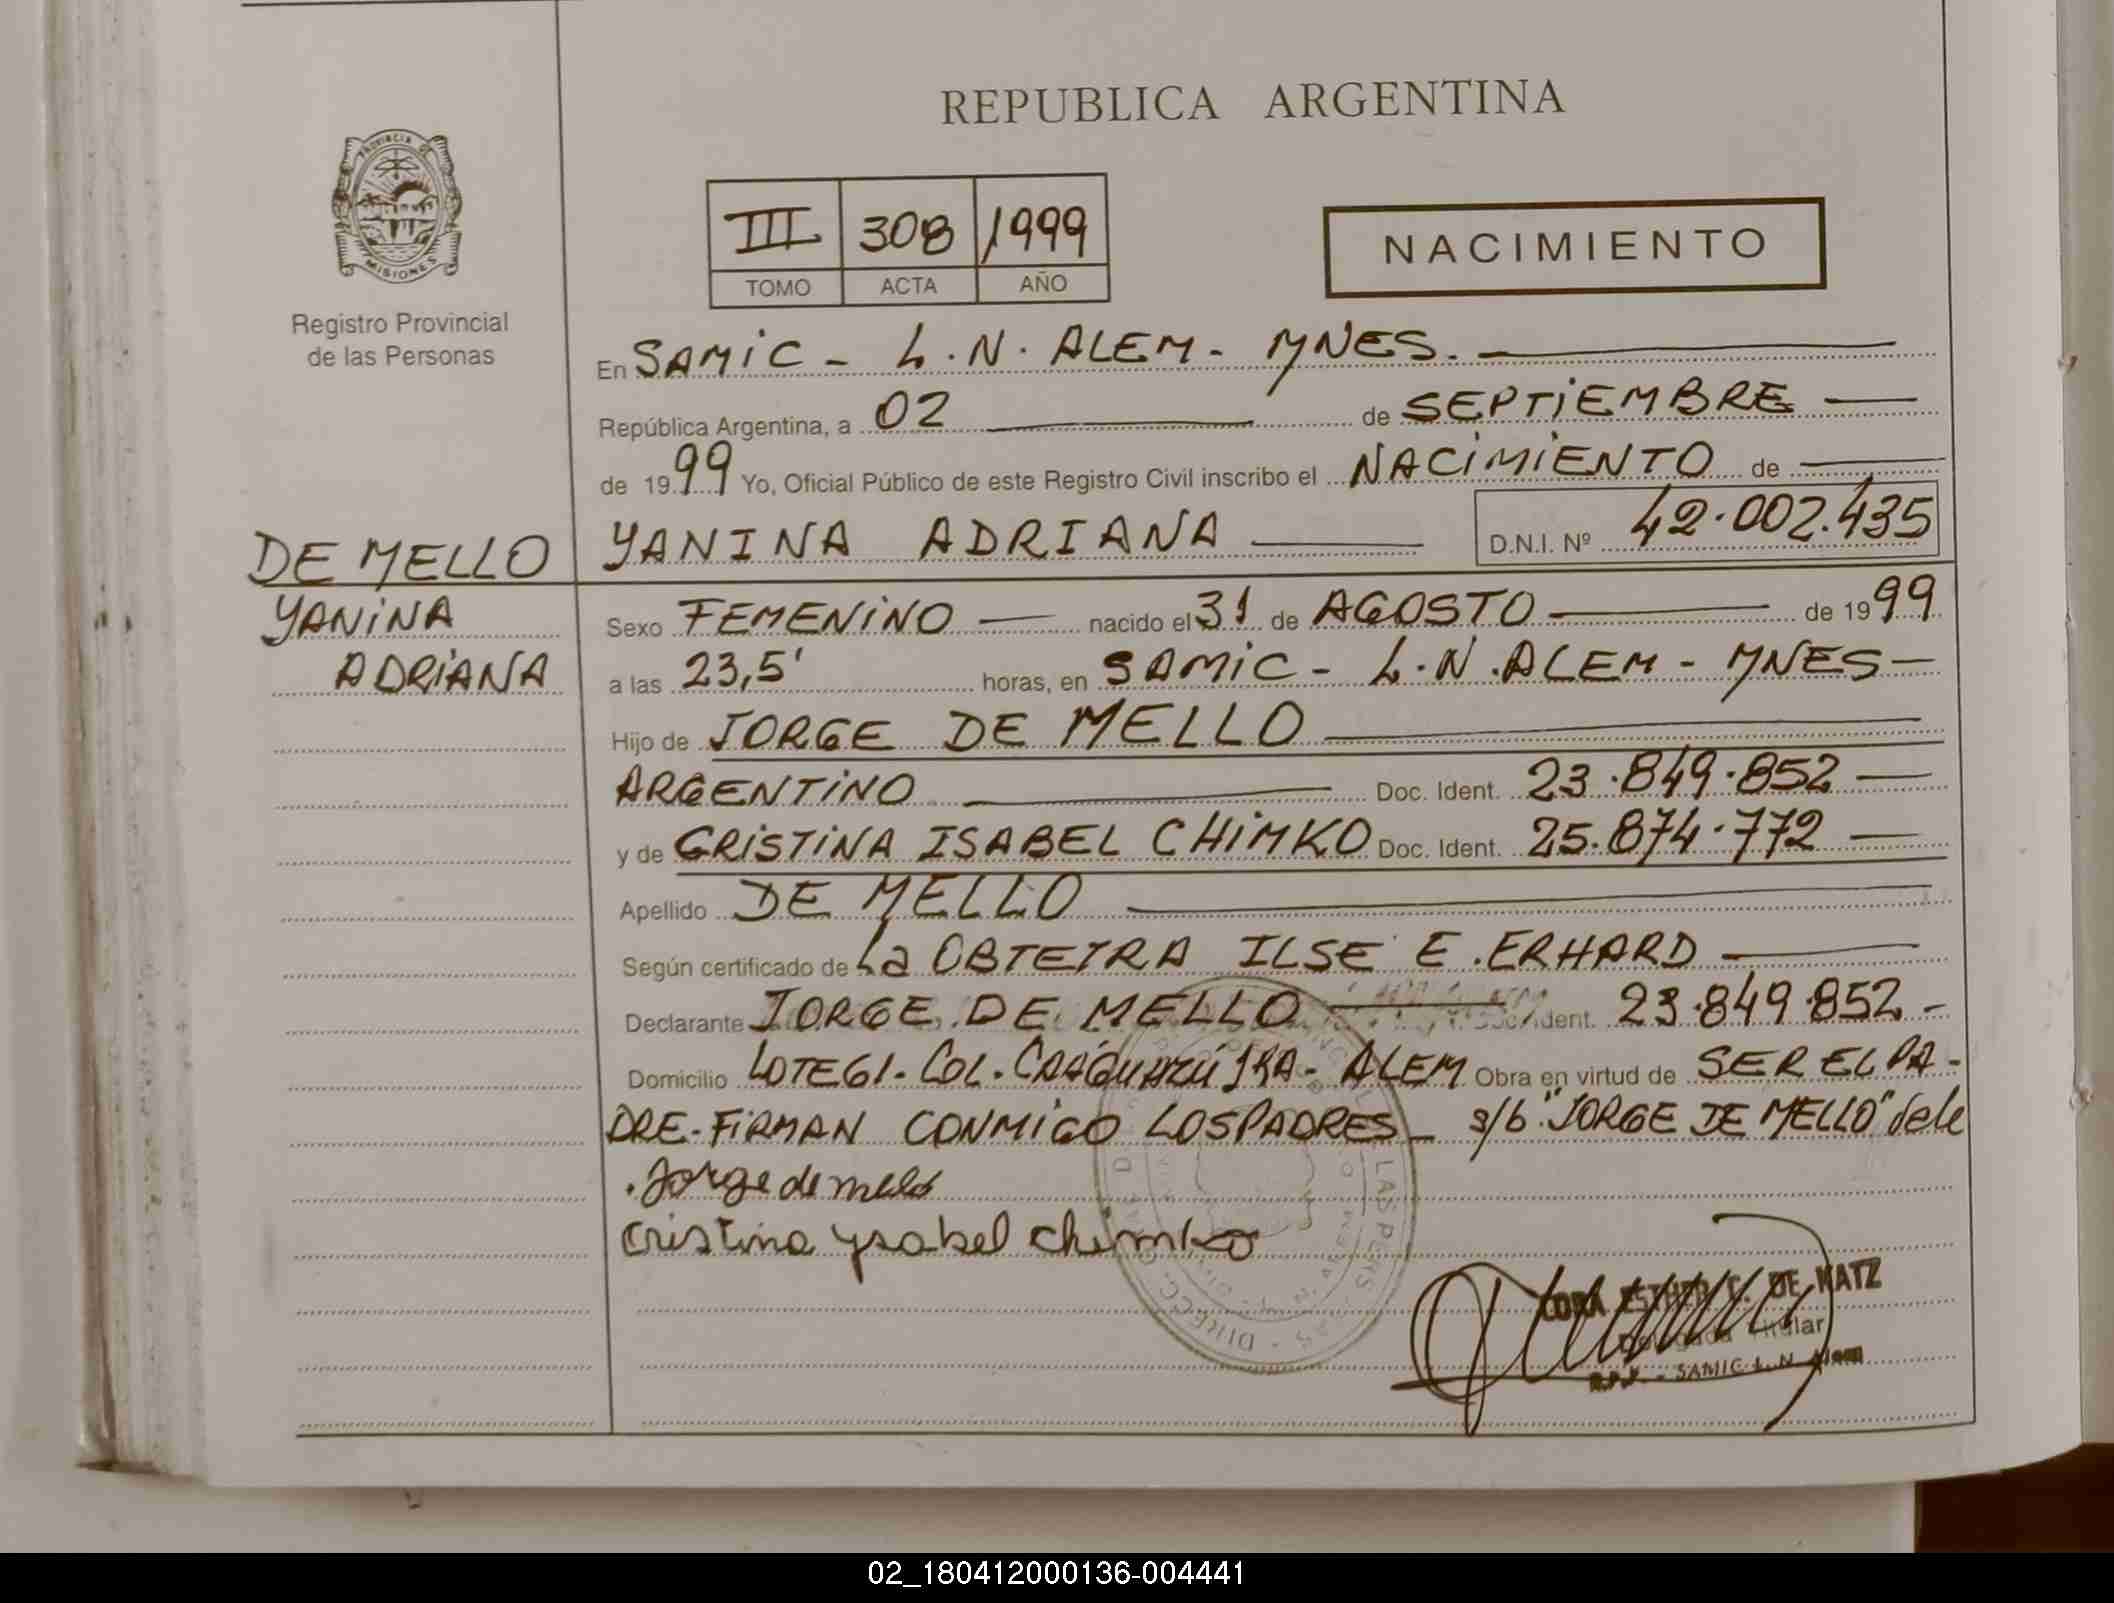 REPUBLICA ARGENTINA
PROVINCIA DE
MISIONES
Registro Provincial
de las Personas
III 308 1999
TOMO ACTA AÑO
NACIMIENTO
En SAMIC - L.N. ALEM - MNES.
República Argentina, a 02 de SEPTIEMBRE
de 1999 Yo, Oficial Público de este Registro Civil inscribo el NACIMIENTO de
DE MELLO YANINA ADRIANA D.N.I. Nº 42.002.435
YANINA
ADRIANA
Sexo FEMENINO nacido el 31 de AGOSTO de 1999
a las 23,5' horas, en SAMIC - L.N. ALEM - MNES
Hijo de JORGE DE MELLO
ARGENTINO Doc. Ident. 23.849.852
y de CRISTINA ISABEL CHIMKO Doc. Ident. 25.874.772
Apellido DE MELLO
Según certificado de La OBTETRA ILSE E. ERHARD
Declarante JORGE DE MELLO Ident. 23.849.852
Domicilio LOTE 61 - COL. ALEM Obra en virtud de SER EL PA-
DRE - FIRMAN CONMIGO LOS PADRES s/b "JORGE DE MELLO"
Jorge de melo
Cristina ysabel chimko
CORA ESTHER C. DE KATZ
Delegada Titular
R.P.P. - SAMIC L.N. Alem
02_180412000136-004441